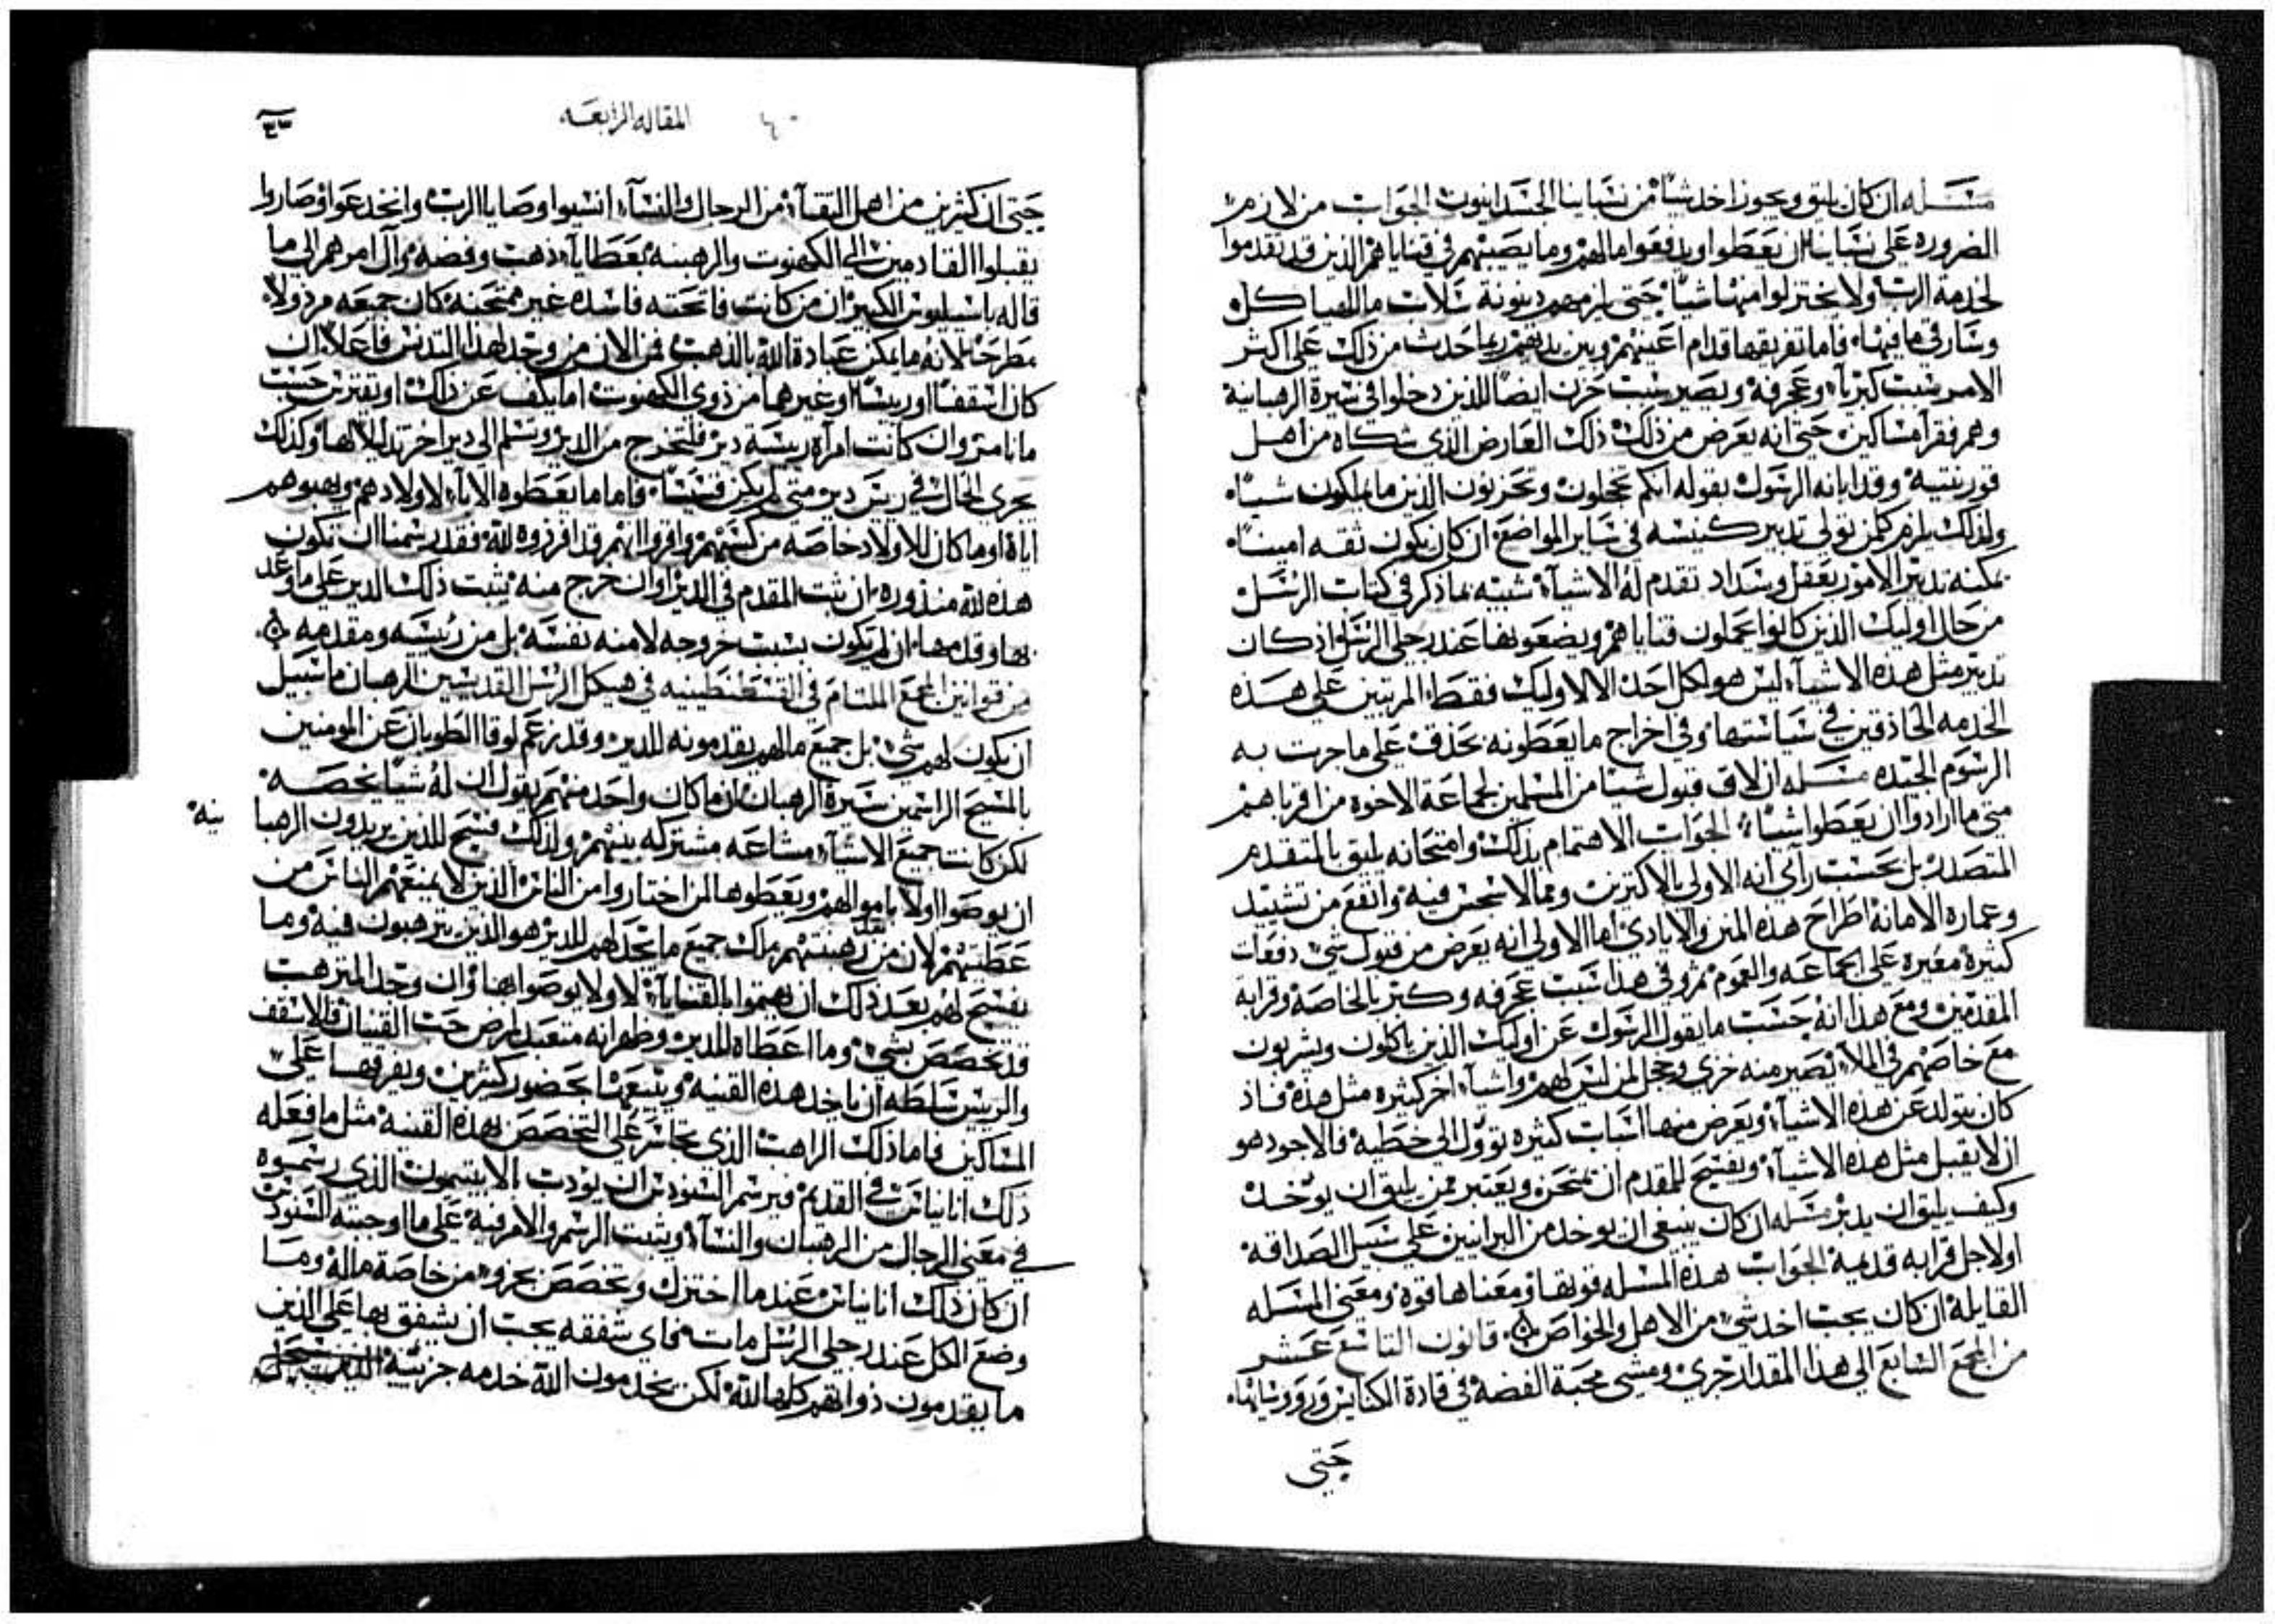 مسله ان كان يليق ويجوز اخد شيا من نسباينا الجسدانيون الجواب من لازم
الضروره على نسباينا ان يعطوا ويدفعوا مالهم وما يصيبهم في قناياهم الذين قد تقدموا
لخدمة الرب ولا يختزلوا منها شيا حتى يلزمهم دينونة ثلاث ماللعيا كل
وسارقي ما فيها فاما تفريقها قدام اعينهم وبين يديهم ربما حدث من ذلك على اكثر
الامر سبب كبريآء وعجرفه ويصير سبب حزن ايضا للذين دخلوا في سيرة الرهبانية
وهم فقرآ مساكين حتى انه يعرض من ذلك ذلك العارض الذي شكاه من اهل
قورنتيه وقد ابانه الرسول بقوله انكم تخجلون وتحزنون الذين ما يملكون شيا
ولذلك يلزم كلمن تولى تدبير كنيسه في ساير المواضع ان كان يكون ثقه امينا
يمكنه تدبير الامور بعقل وسداد تقدم له الاشيآء شبيه بما ذكر في كتاب الرسل
من حال اوليك الذين كانوا يحملون قناياهم ويضعونها عند رجلي الرسل اذ كان
تدبير مثل هذه الاشيآء ليس هو لكل احد الا لاوليك فقط المرتبين على هذه
الخدمه الحاذقين في سياستها وفي اخراج ما يعطونه بحذف على ما جرت به
الرسوم الجيده مسله ان لاق قبول شيا من المسلمين لجماعة الاخوه من اقرباهم
متى ما ارادوا ان يعطوا شيا الجواب الاهتمام بذلك وامتحانه يليق بالمتقدم
المتصدر بل بحسب رآيي انه الاولى بالاكثرين ومما لا سجس فيه وانفع من تشييد
وعمارة الامانة اطراح هذه المنن والايادي اما الاولى انه يعرض من قبول شي دفعات
كثيرة معيره على الجماعه والعموم ثم وفي هذا سبب عجرفه وكبر بالخاصة وقرابة
المقدمين ومع هذا انه حسب ما يقول الرسول عن اوليك الذين ياكلون ويشربون
مع خاصتهم في الملآ يصير منه خزي وخجل لمن ليس لهم واشيآء اخر كثيره مثل هذه فاذ
كان يتولد عن هذه الاشيآء ويعرض منها اسباب كثيره تووّل الى خطيه فالاجود هو
ان لا يقبل مثل هذه الاشيآء ويفسح للمقدم ان يمتحن ويعتبر ممن يليق ان يوخد
وكيف يليق ان يدبر مسله ان كان ينبغي ان يوخد من البرانيين على سبيل الصداقة
او لاجل قرابه قديمة الجواب هذه المسله قوتها ومعناها قوة ومعنى المسله
القايلة ان كان يجب اخد شي من الاهل والخواص قانون التاسع عشر
من المجمع السابع الى هذا المقدار جرى ومشى محبة الفضه في قادة الكنايس وروسايها
حتى
المقاله الرابعه
حتى ان كثرين من اهل التقيآء من الرجال والنسآء انسيوا وصايا الرب وانخدعوا وصاروا
يقبلوا القادمين الى الكهنوت والرهبنه بعطايآء ذهب وفضه وآل امرهم الى ما
قاله باسيليوس الكبير ان من كانت فاتحته فاسده غير ممتحنه كان جميعه مرذولا
مطرحا لانه ما يمكن عبادة الله بالذهب فمن الان من وجد لهذا التدنس فاعلا ان
كان اسقفا او ريسا او غيرهما من ذوي الكهنوت اما يكف عن ذلك او يفترز حسب
مانامر وان كانت امرآه ريسة دير فلتخرج من الدير وتسلم الى دير اخر تدليلا لها وكذلك
يجري الحال في ريس دير متى لم يكن قسيسا فاما ما يعطوه الابآء لاولادهم ويهبوهم
اياه او ما كان للاولاد خاصه من كسبهم واقروا انهم قد افرزوه لله فقد رسمنا ان تكون
هذه لله منذوره ان ثبت المقدم في الدير او ان خرج منه يثبت ذلك الدير على ما وعد
بها وقدمها ان لم يكون بسبب خروجه لا منه نفسه بل من رئيسه ومقدمه
من قوانين المجمع الملتام في القسطنطينيه في هيكل الرسل القديسين الرهبان ما سبيل
ان يكون لهم شي بل جميع مالهم يقدمونه للدير وقد زعم لوقا الطوبان عن المومنين
بالمسيح الراسمين سيرة الرهبان ان ما كان واحد منهم يقول ان له شيا يخصه
لكن كانت جميع الاشيآء مشاعه مشتركه بينهم ولذلك فسح للذين يريدون الرهبا نيه
ان يوصوا اولا باموالهم ويعطوها لمن اختاروا من الناس الذين لا يمنعهم الناس من
عطيتهم لان من بعد رهبنتهم يملك جميع ما يتجد لهم للدير هو الذين يترهبون فيه وما
يفسح لهم بعد ذلك ان يهتموا بالقنايآء لا ولا يوصوا بها وان وجد المترهب
قد تخصص بشي وما اعطاه للدير وظهر انه متعبد لمرض حب القنيان فالاسقف
والريس سلطه ان ياخد هذه القنيه ويبيعها بحضور كثيرين ويفرقها على
المساكين فاما ذلك الراهب الذي تجاسر على التخصص بهذه القنيه مثل ما فعله
ذلك انانياس في القديم فيرسم السنودس ان يودب الابيتيمون الذي رسموه
في معنى الرجال من الرهبان والنسآء ويثبت الرسم والامر فيه على ما اوجبته السنودس
ان كان ذلك انانياس عندما اختزل وتخصص بجزو من خاصة ماله وما
وضع الكل عند رجلي الرسل مات فاي شفقه يجب ان يشفق بها على الذين
ما يقدمون ذواتهم كلها لله لكن يخدمون الله خدمه جزئيه